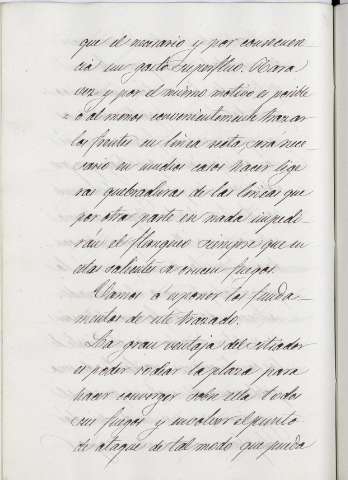 que el necesario y por consecuen-
cia un gasto superfluo. Rara
vez y por el mismo motivo es posible
o al menos conveniente trazar
los frentes en linea recta, será nece-
sario en muchos casos hacer lige-
ras quebraduras de las lineas que
por otra parte en nada impedi-
rán el flanqueo siempre que en
estas salientes se crucen fuegos.
Vamos á esponer los funda-
mentos de este trazado.
La gran ventaja del sitiador
es poder rodear la plaza para
hacer converger sobre ella todos
sus fuegos y envolver el punto
de ataque de tal modo que pueda